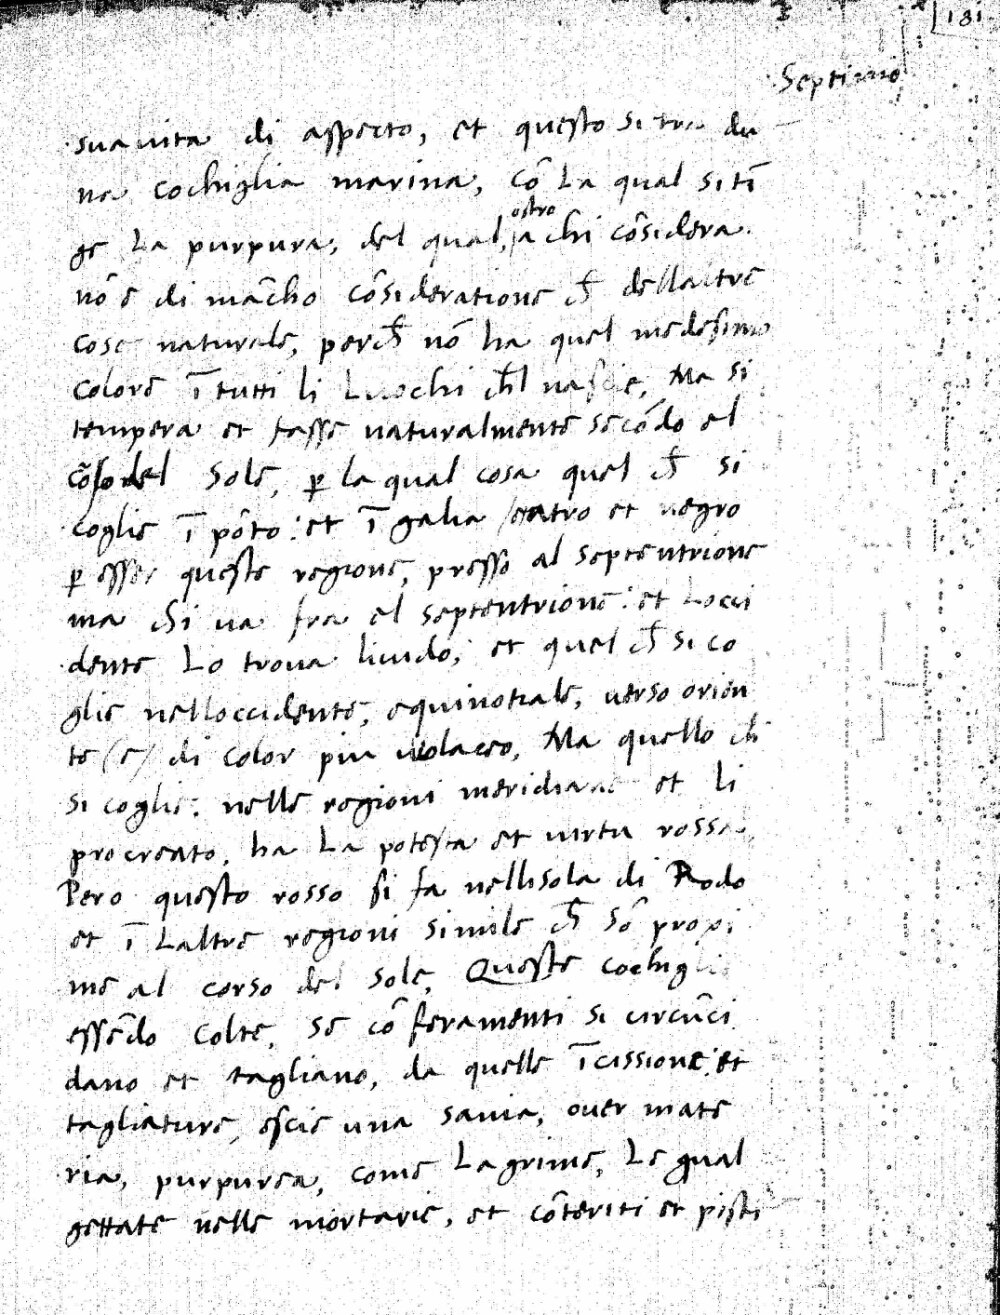 181
Septimo
suauita di aspecto, et questo si tra du
na cochiglia marina, cō La qual si tī
ge La purpura, del qual, ostro a chi cōsidera.
nō e di mācho cōsideratione ch̄ dellaltre
cose naturale, perch̄ nō ha quel medesimo
colore ī tutti li Luochi ch̄l nascie, Ma si
tempera et fasse naturalmente secōdo el
cōso del Sole, p la qual cosa quel ch̄ si
coglie ī pōto: et ī galia atro et negro
p esser queste regione, presso al septentrione
ma chi ua fra el septentrione: et Locci
dente Lo troua liuido, et quel ch̄ si co
glie nelloccidente, equinotiale, uerso orien
te (e) di color piu uiolaceo, Ma quello ch̄
si coglie: nelle regioni meridiane et li
procreato, ha La potesta et uirtu rossa,
Pero questo rosso si fa nellisola di Rodo
et ī Laltre regioni simile ch̄ sō proxi
me al corso del sole, Queste cochiglie
essēdo colte, se cō feramenti si circūci
dano et tagliano, da quelle īcissione, et
tagliature, escie una sania, ouer mate
ria, purpurea, come Lagrime, Le qual
gettate nelle mortarie, et cōteriti et pisti